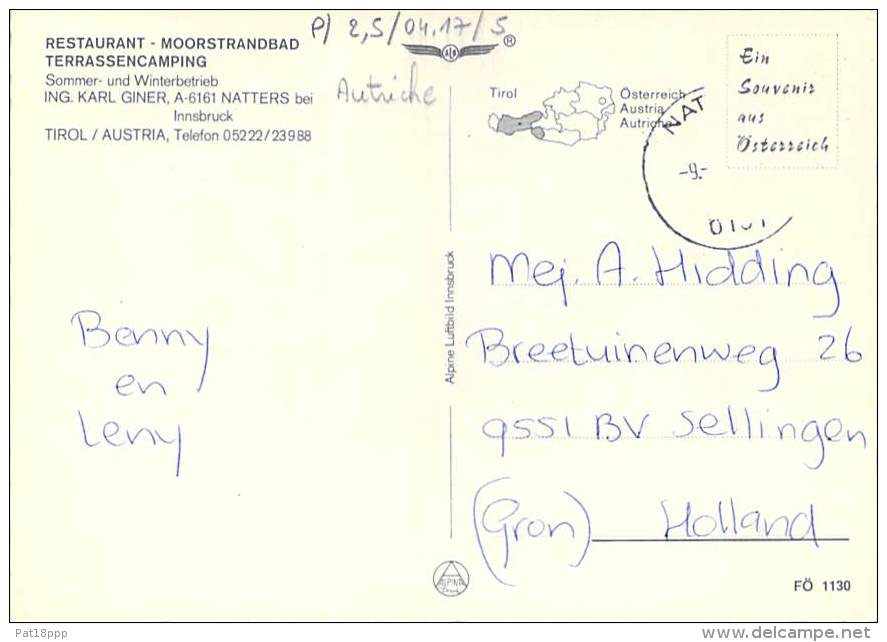 P/ 2,5/04.17/5
RESTAURANT - MOORSTRANDBAD
TERRASSENCAMPING
Sommer- und Winterbetrieb
ING. KARL GINER, A-6161 NATTERS bei
Innsbruck
TIROL / AUSTRIA, Telefon 05222/23988
Autriche
®
Tirol
Österreich
Austria
Autriche
NAT
-9.-
Ein
Souvenir
aus
Österreich
Alpine Luftbild Innsbruck
Mej. A. Hidding
Breetuinenweg 26
9551 BV Sellingen
(Gron) Holland
Benny
en
Leny
ALPINE
FÖ 1130
Pat18ppp
www.delcampe.net